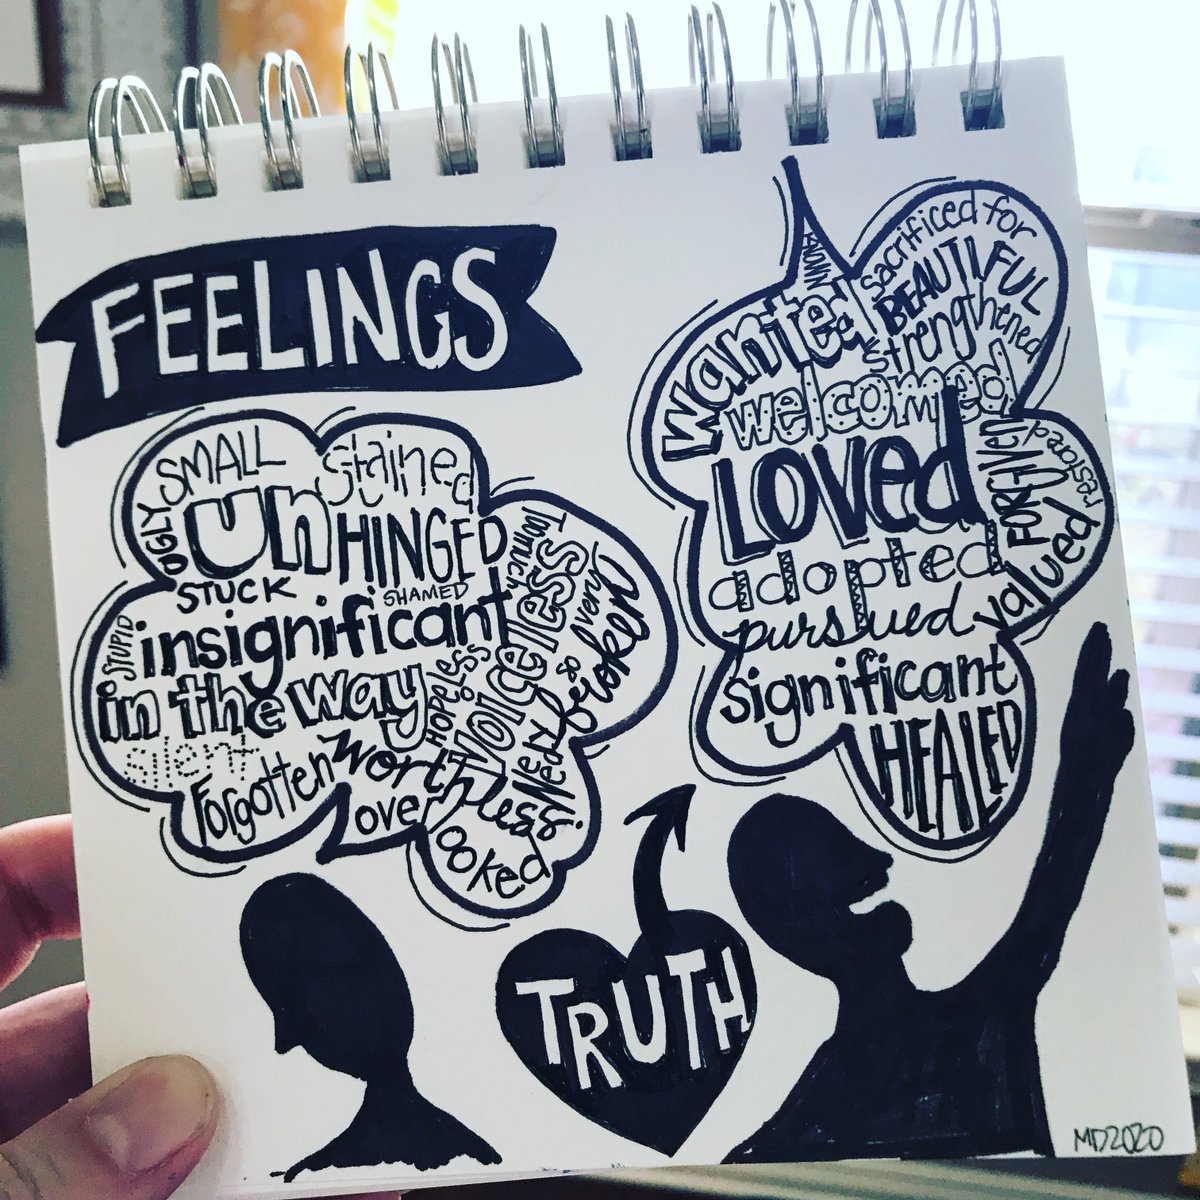 FEELINGS
SMALL
stained
UGLY
unHINGED
STUCK
SHAMED
STUPID
insignificant
in the way
silent
Forgotten
HOPELESS
Voiceless
Too much
so very broken
Needy
worthless
Overlooked
KNOWN
sacrificed for
BEAUTIFUL
wanted
strengthened
welcomed
Loved
FORGIVEN
restored
adopted
valued
pursued
significant
HEALED
TRUTH
MD2020